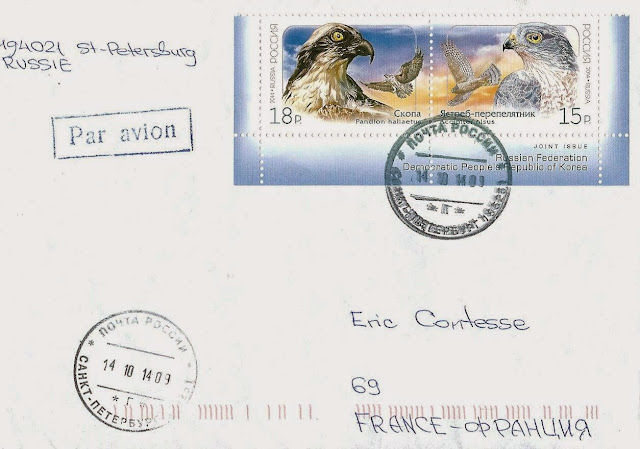 194021 St-Petersburg
RUSSIE
Par avion
РОССИЯ
2014 • RUSSIA
18р
Скопа
Pandion haliaetus
Ястреб-перепелятник
Accipiter nisus
15р
РОССИЯ
2014 • RUSSIA
JOINT ISSUE
Russian Federation
Democratic People's Republic of Korea
* ПОЧТА РОССИИ *
14 10 14 09
САНКТ-ПЕТЕРБУРГ
* П *
* ПОЧТА РОССИИ *
14 10 14 09
САНКТ-ПЕТЕРБУРГ
* Г *
Eric Contesse
69
FRANCE-ФРАНЦИЯ